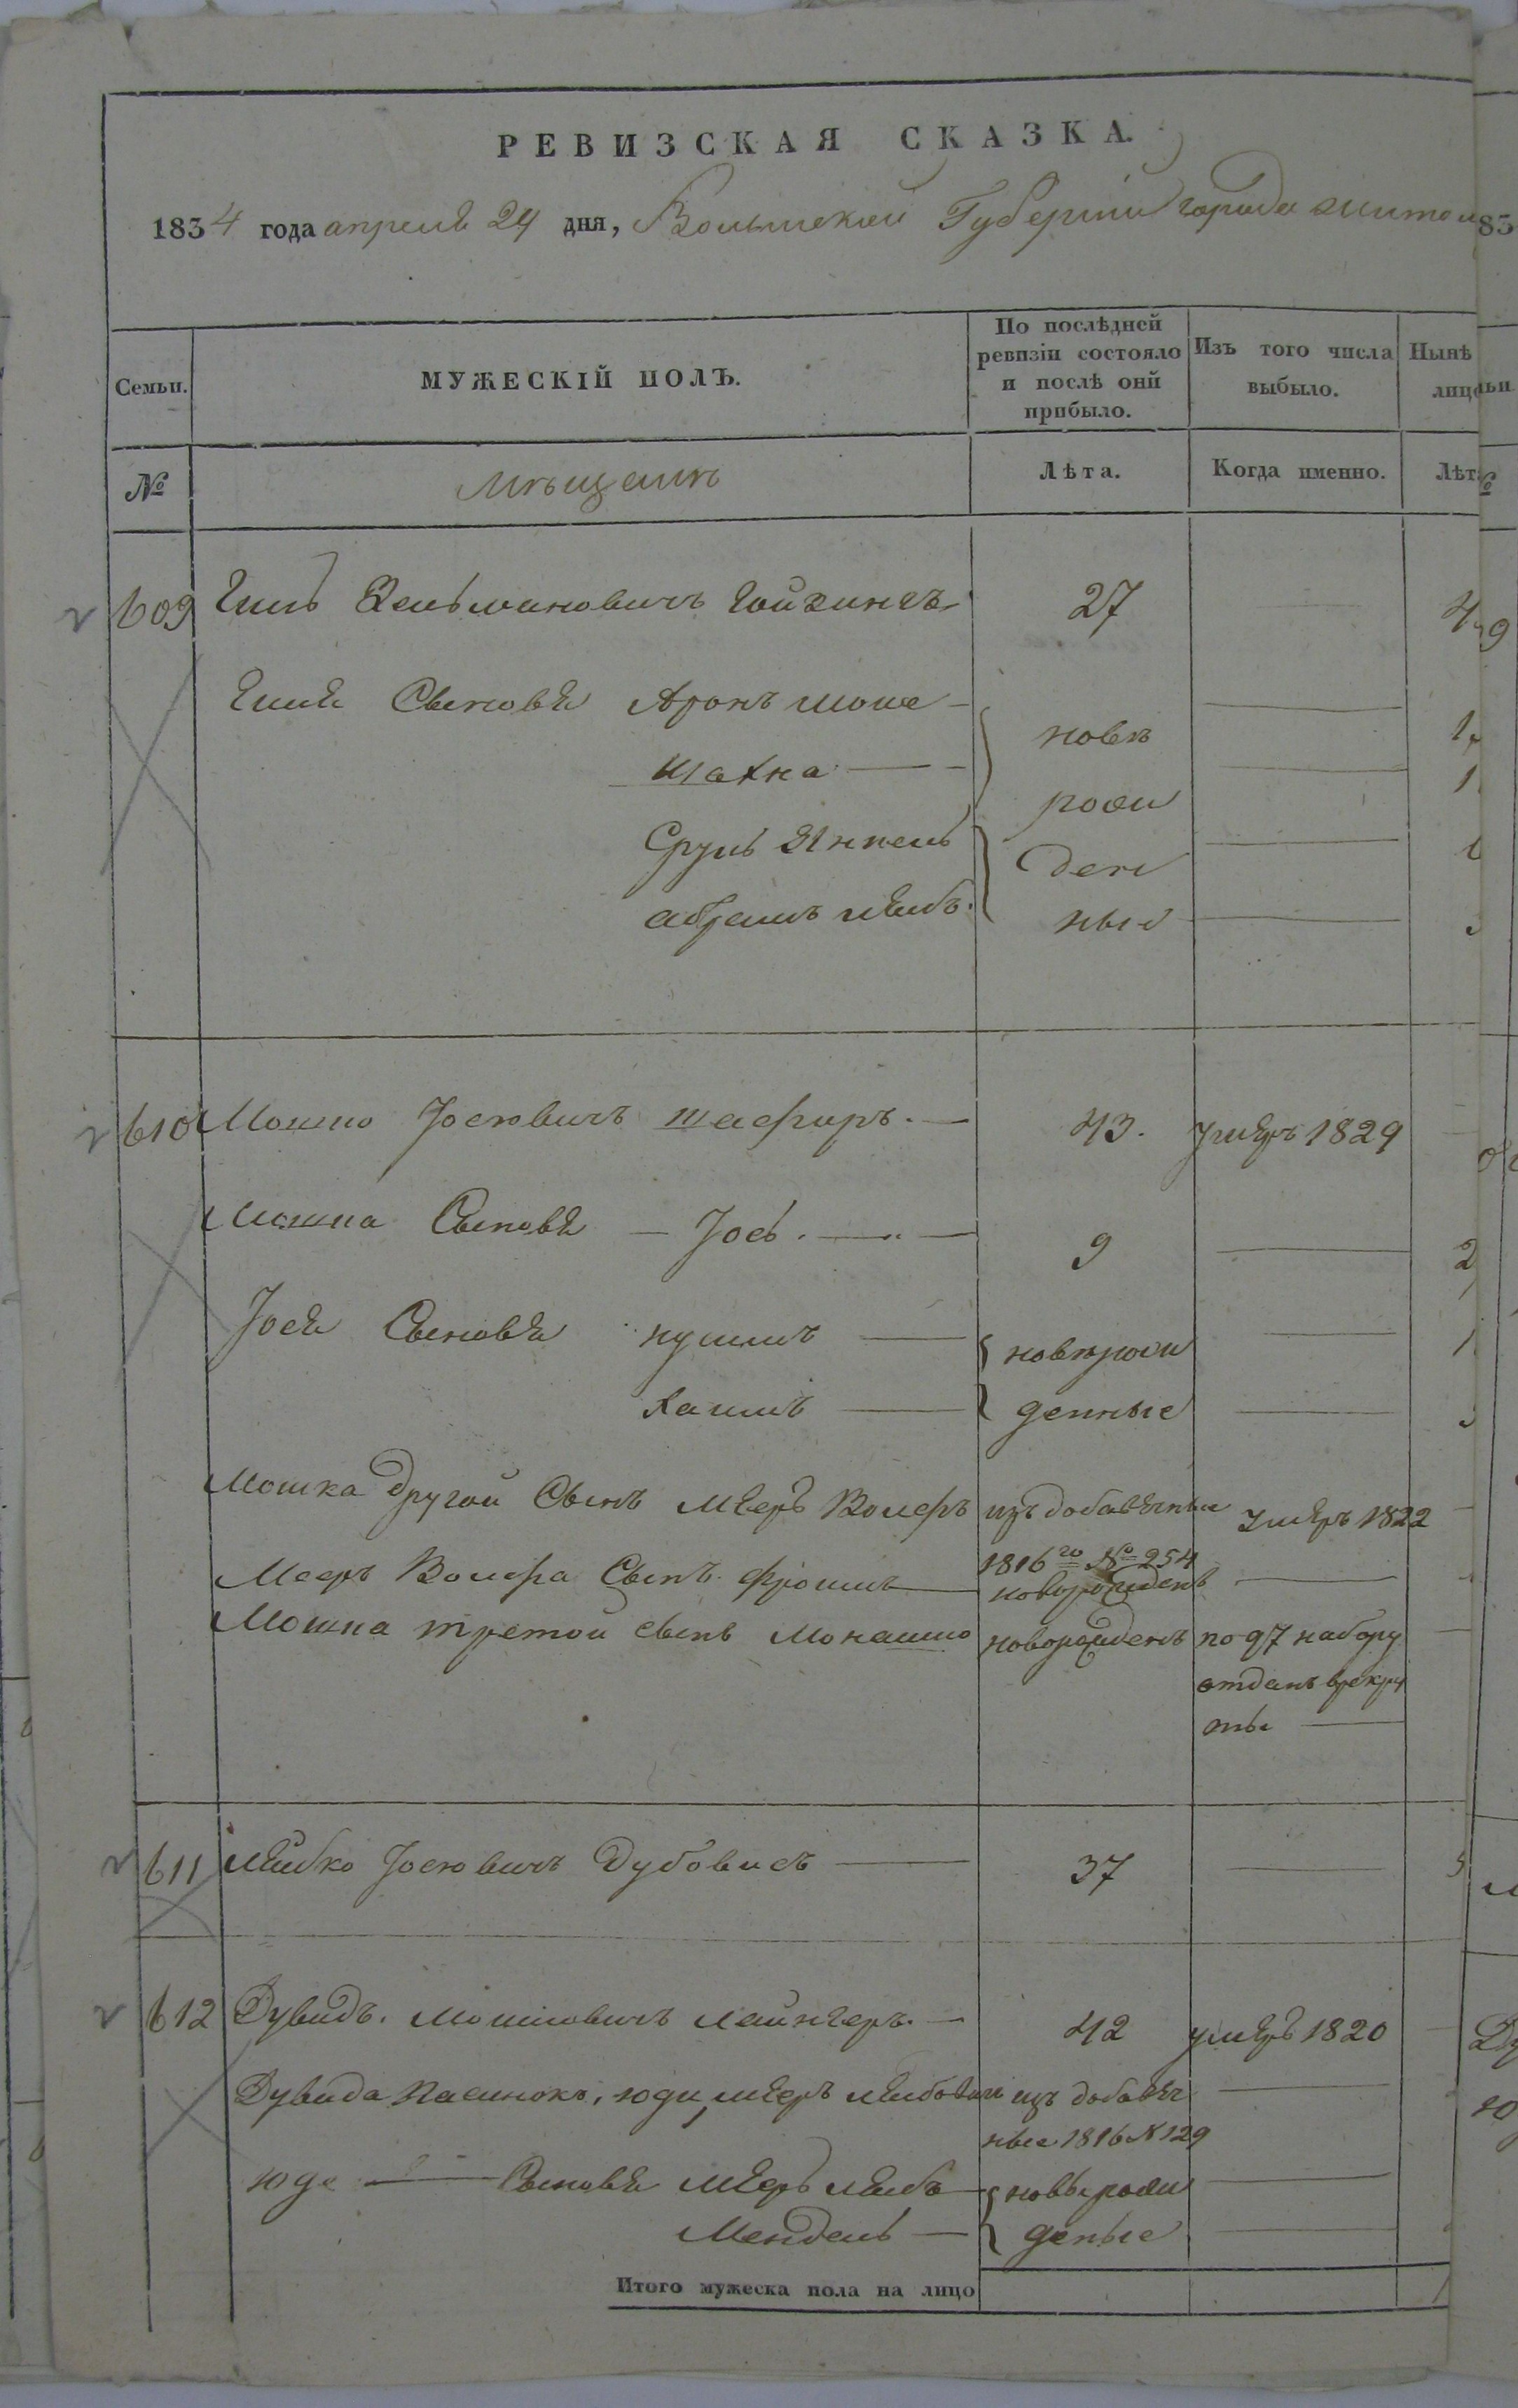 РЕВИЗСКАЯ СКАЗКА.
1834 года апреля 24 дня, Волынской Губернии города
Семьи.
МУЖЕСКІЙ ПОЛЪ.
По послѣдней ревизіи состояло и послѣ оной прибыло.
Изъ того числа выбыло.
Нынѣ
лицо
№
Мѣщанъ
Лѣта.
Когда именно.
Лѣт
609 Гиль Зельмановичъ 27
Гиля Сыновья Аронъ Моше
Шахна
Сруль Янкель
Абрамъ Лейбъ
ново
рож
ден
ные
610 Мошко Іосіовичъ Шафиръ. 43. умеръ 1829
Мошка Сыновья Іось. 9
Іося Сыновья Нухимъ новорож
Хаимъ денные
Мошка другой Сынъ Мееръ Волфъ изъ добавочныхъ умеръ 1822
1816го № 254
Меера Волфа Сынъ Фроимъ новорожденъ
Мошка третой сынъ Монашко новорожденъ по 97 набору
отданъ врекру
ты
611 Лейбко Іосіовичъ Дубовисъ 37
612 Дувидъ Мошковичъ 42 умеръ 1820
Дувида Пасинокъ, Юди Мееръ Лейбовичъ изъ добавоч
ные 1816 N 129
Юде Сыновья Мееръ Лейбъ новорож
Мендель деные
Итого мужеска пола на лицо